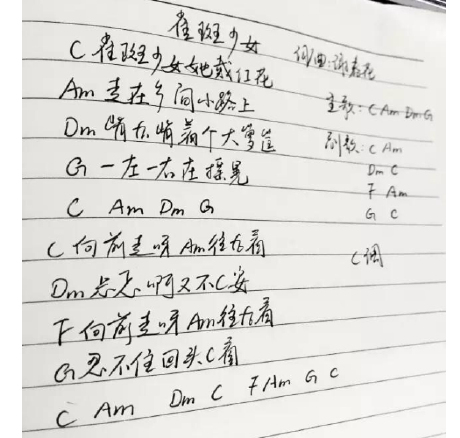 雀斑少女
词曲:谢春花
C 雀斑少女她戴红花
主歌: C Am Dm G
Am 走在乡间小路上
副歌: C Am
Dm 背后背着个大箩筐
Dm C
G 一左一右在摇晃
F Am
G C
C Am Dm G
C调
C 向前走呀 Am往右看
Dm 忐忑啊又不C安
F 向前走呀 Am往右看
G 忍不住回头C看
C Am Dm C F Am G C